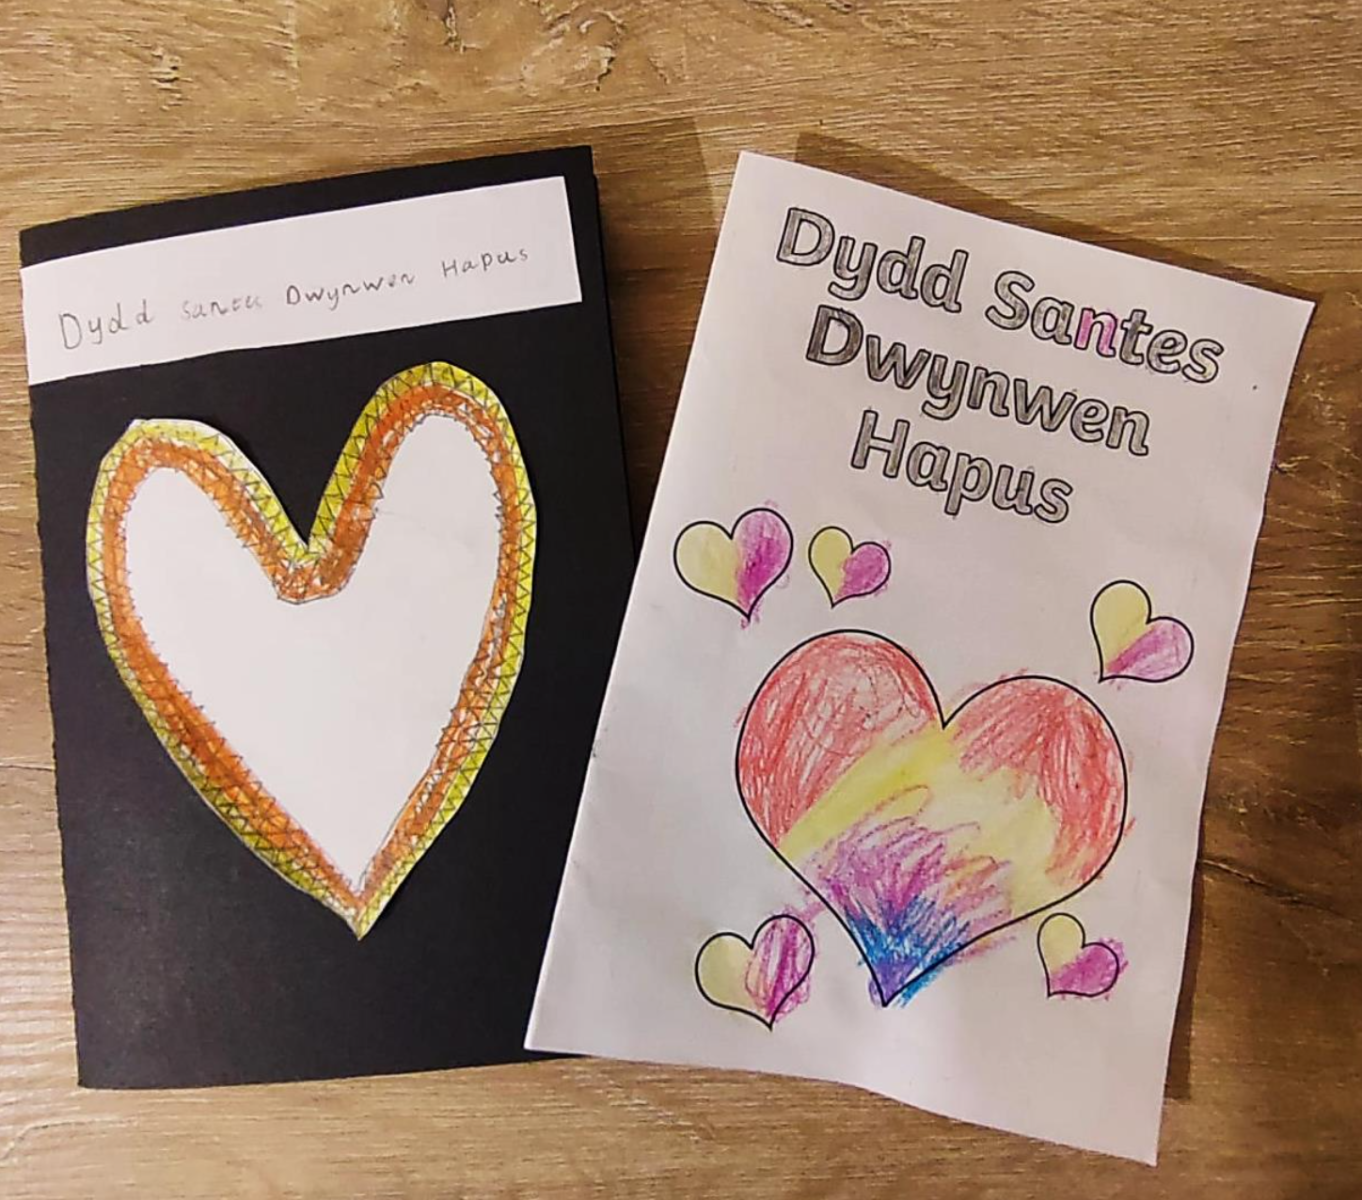 Dydd Santes Dwynwen Hapus
Dydd Santes
Dwynwen
Hapus